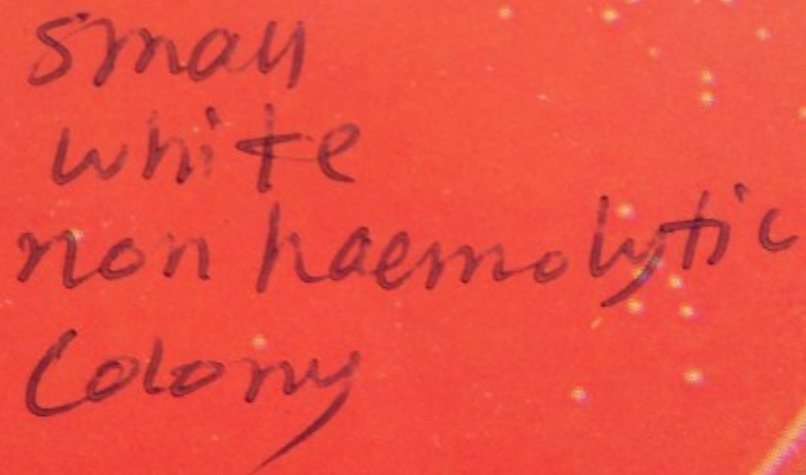 small
white
non haemolytic
Colony